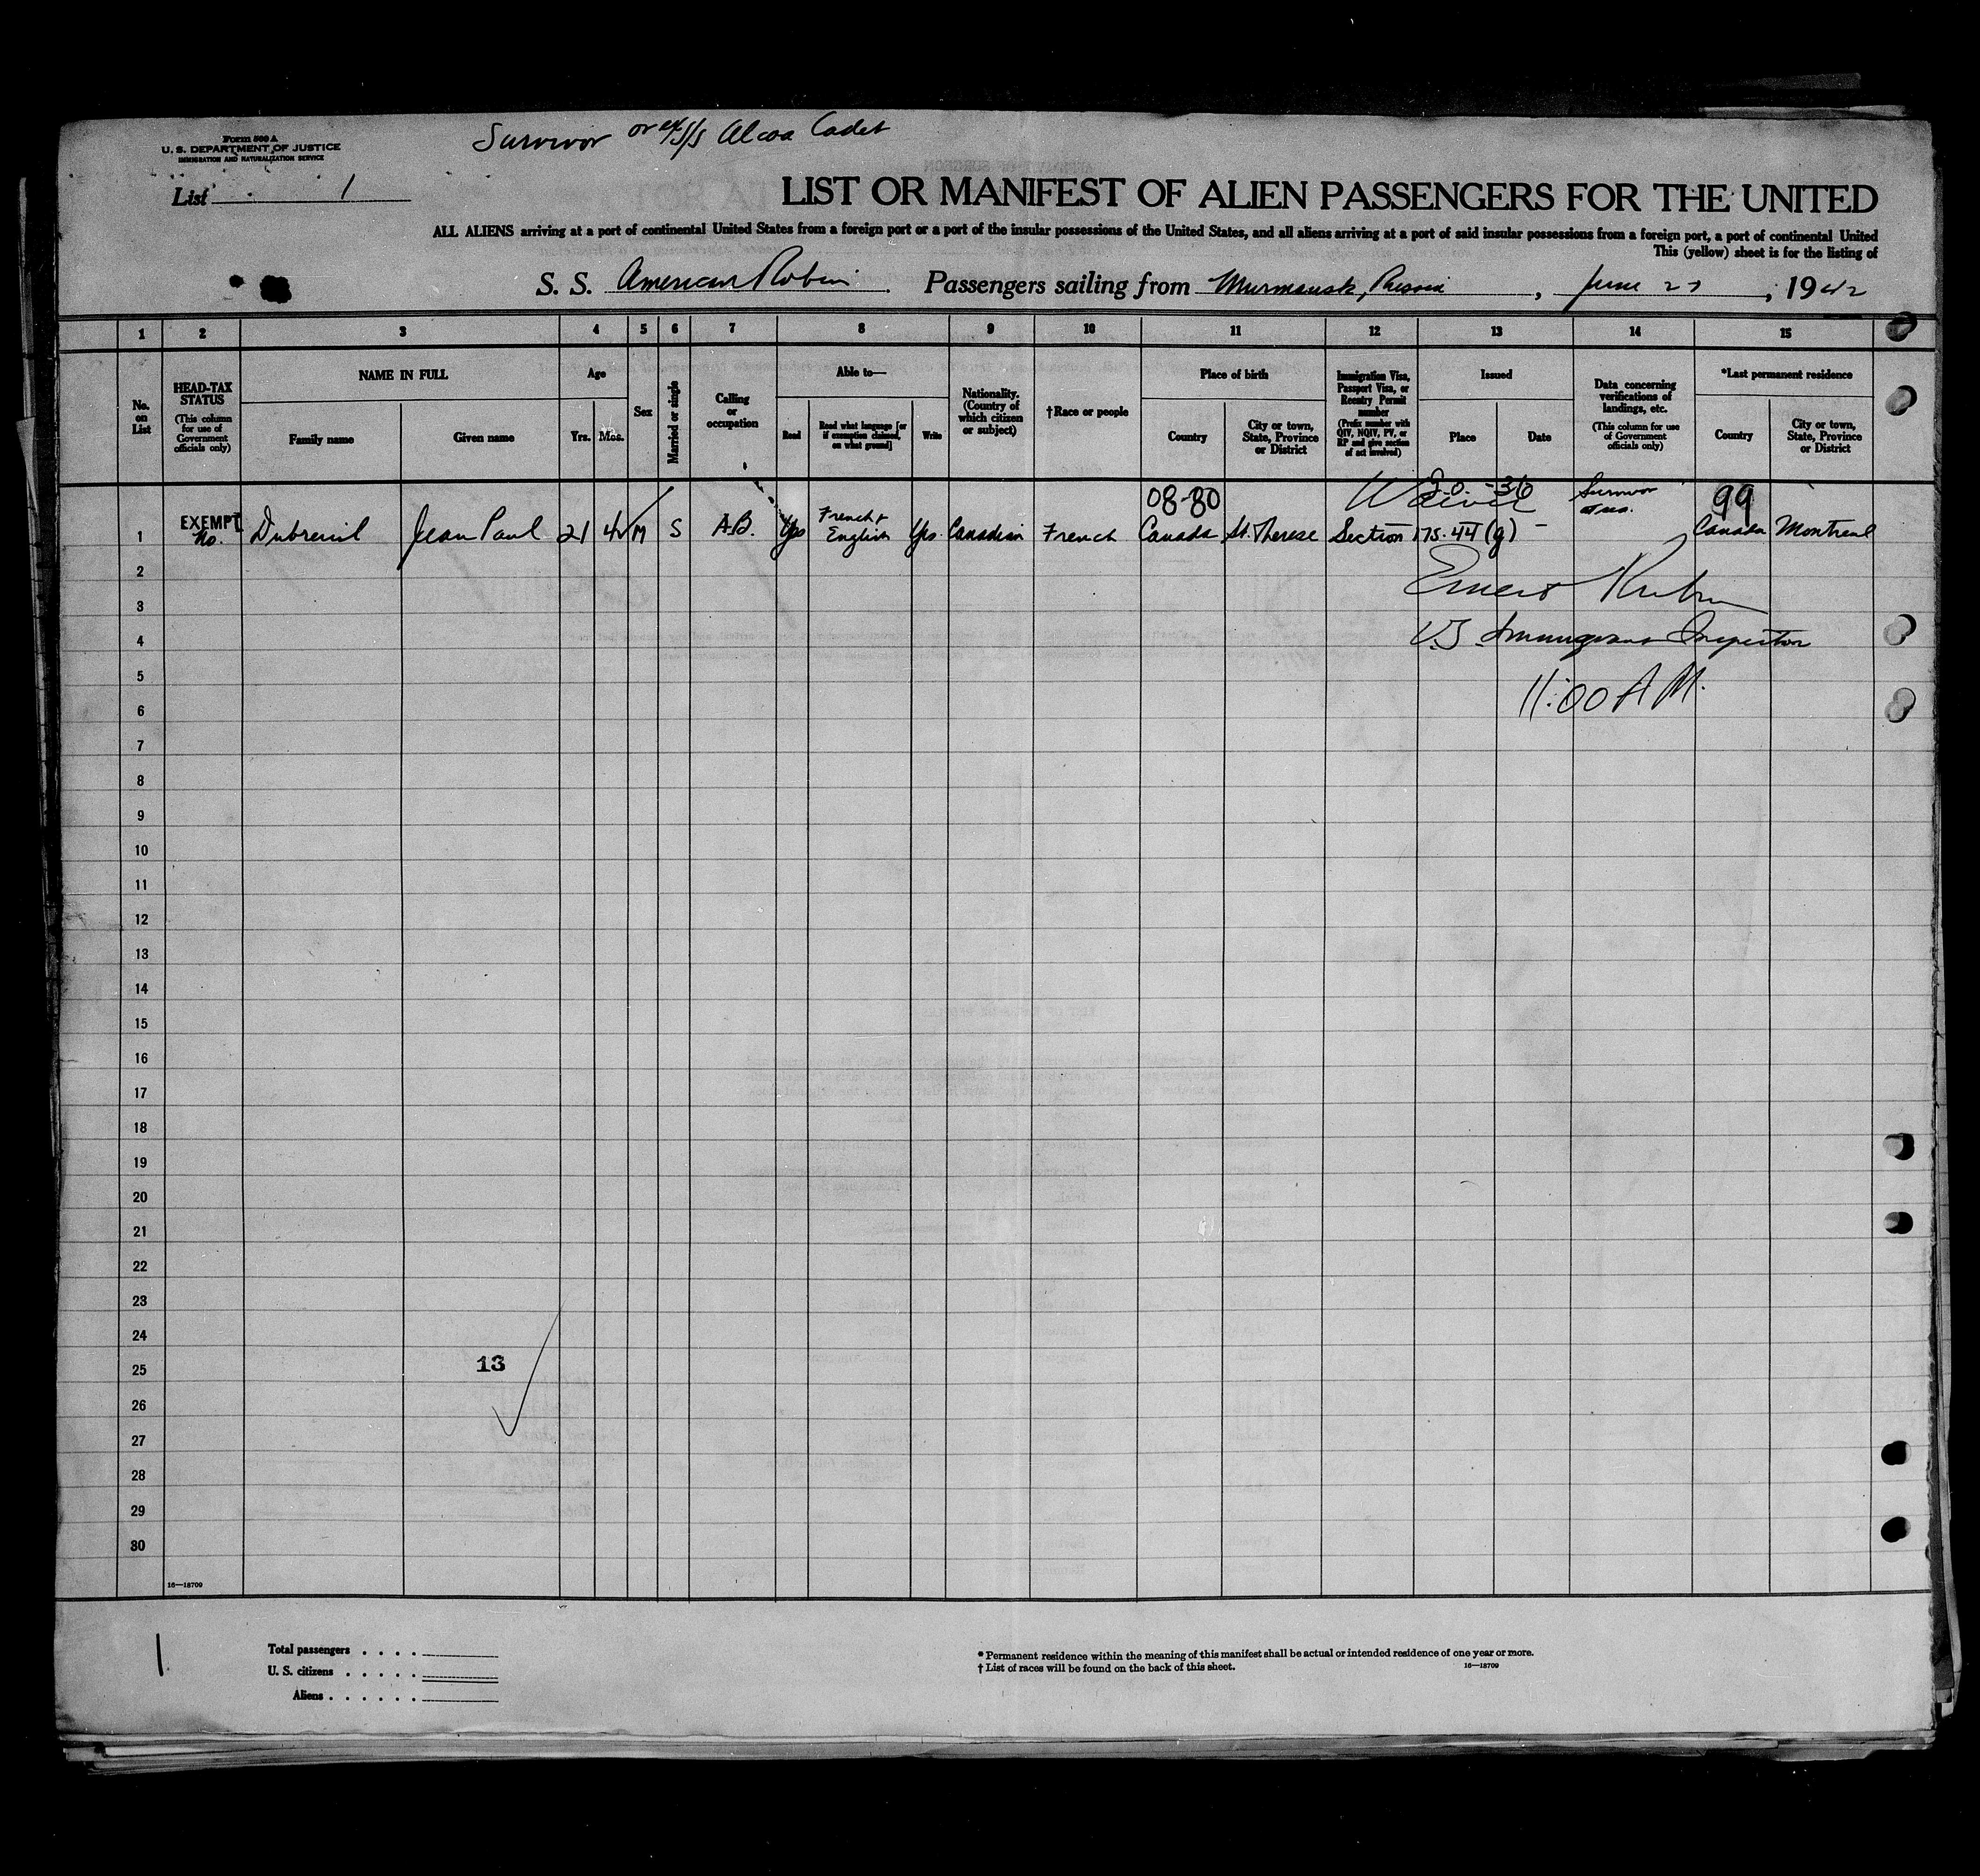 Survivor of ex S/S Alcoa Cadet
Form 500 A
U. S. DEPARTMENT OF JUSTICE
IMMIGRATION AND NATURALIZATION SERVICE
List 1
LIST OR MANIFEST OF ALIEN PASSENGERS FOR THE UNITED
ALL ALIENS arriving at a port of continental United States from a foreign port or a port of the insular possessions of the United States, and all aliens arriving at a port of said insular possessions from a foreign port, a port of continental United
This (yellow) sheet is for the listing of
S. S. American Robin Passengers sailing from Murmansk, Russia, June 27, 1942
1 2 3 4 5 6 7 8 9 10 11 12 13 14 15
No. on List
HEAD-TAX STATUS
(This column for use of Government officials only)
NAME IN FULL
Family name Given name
Age
Yrs. Mos.
Sex
Married or single
Calling or occupation
Able to—
Read
Read what language [or if exemption claimed, on what ground]
Write
Nationality. (Country of which citizen or subject)
†Race or people
Place of birth
Country
City or town, State, Province or District
Immigration Visa, Passport Visa, or Reentry Permit number
(Prefix number with QIV, NQIV, PV, or RP and give section of act involved)
Issued
Place Date
Data concerning verifications of landings, etc.
(This column for use of Government officials only)
*Last permanent residence
Country
City or town, State, Province or District
08-80 Waived Survivor 99
1 EXEMPT No. Dubreuil Jean Paul 21 4 M S A.B. Yes French & English Yes Canadian French Canada St. Therese Section 175.44 (g) Canada Montreal
2
Ernest Rubin
3
4 U.S. Immigrant Inspector
5
11:00 A M.
6
7
8
9
10
11
12
13
14
15
16
17
18
19
20
21
22
23
24
25 13
26
27
28
29
30
16—18709
1
Total passengers
U. S. citizens
Aliens
* Permanent residence within the meaning of this manifest shall be actual or intended residence of one year or more.
† List of races will be found on the back of this sheet. 16—18709